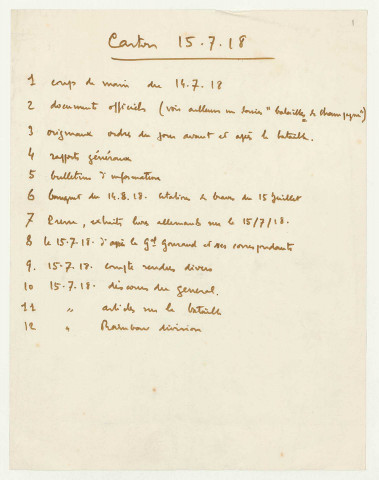 1
Carton 15.7.18
1 coup de main du 14.7.18
2 document officiels (voir ailleurs un dossier "batailles de champagne")
3 originaux ordres du jour avant et après la bataille.
4 rapports généraux
5 bulletins d'information
6 bouquet du 14.8.18. citations de braves du 15 Juillet
7 Presse, extraits livres allemands sur le 15/7/18.
8 le 15.7.18. d'après le Gal Gouraud et ses correspondants
9. 15.7.18. compte rendus divers
10 15.7.18. discours du general.
11 " articles sur la bataille
12 " Rainbow division